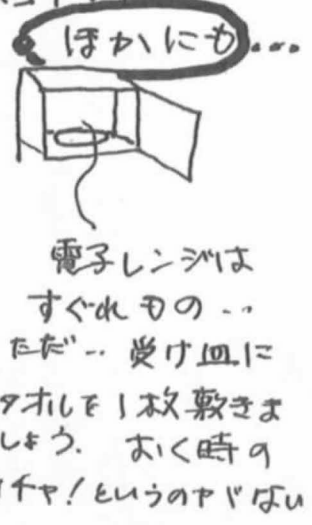 ほかにも...
電子レンジは
すぐれもの..
ただ‥ 受け皿に
タオルを1枚敷きま
しょう. おく時の
チャ!というのヤバない